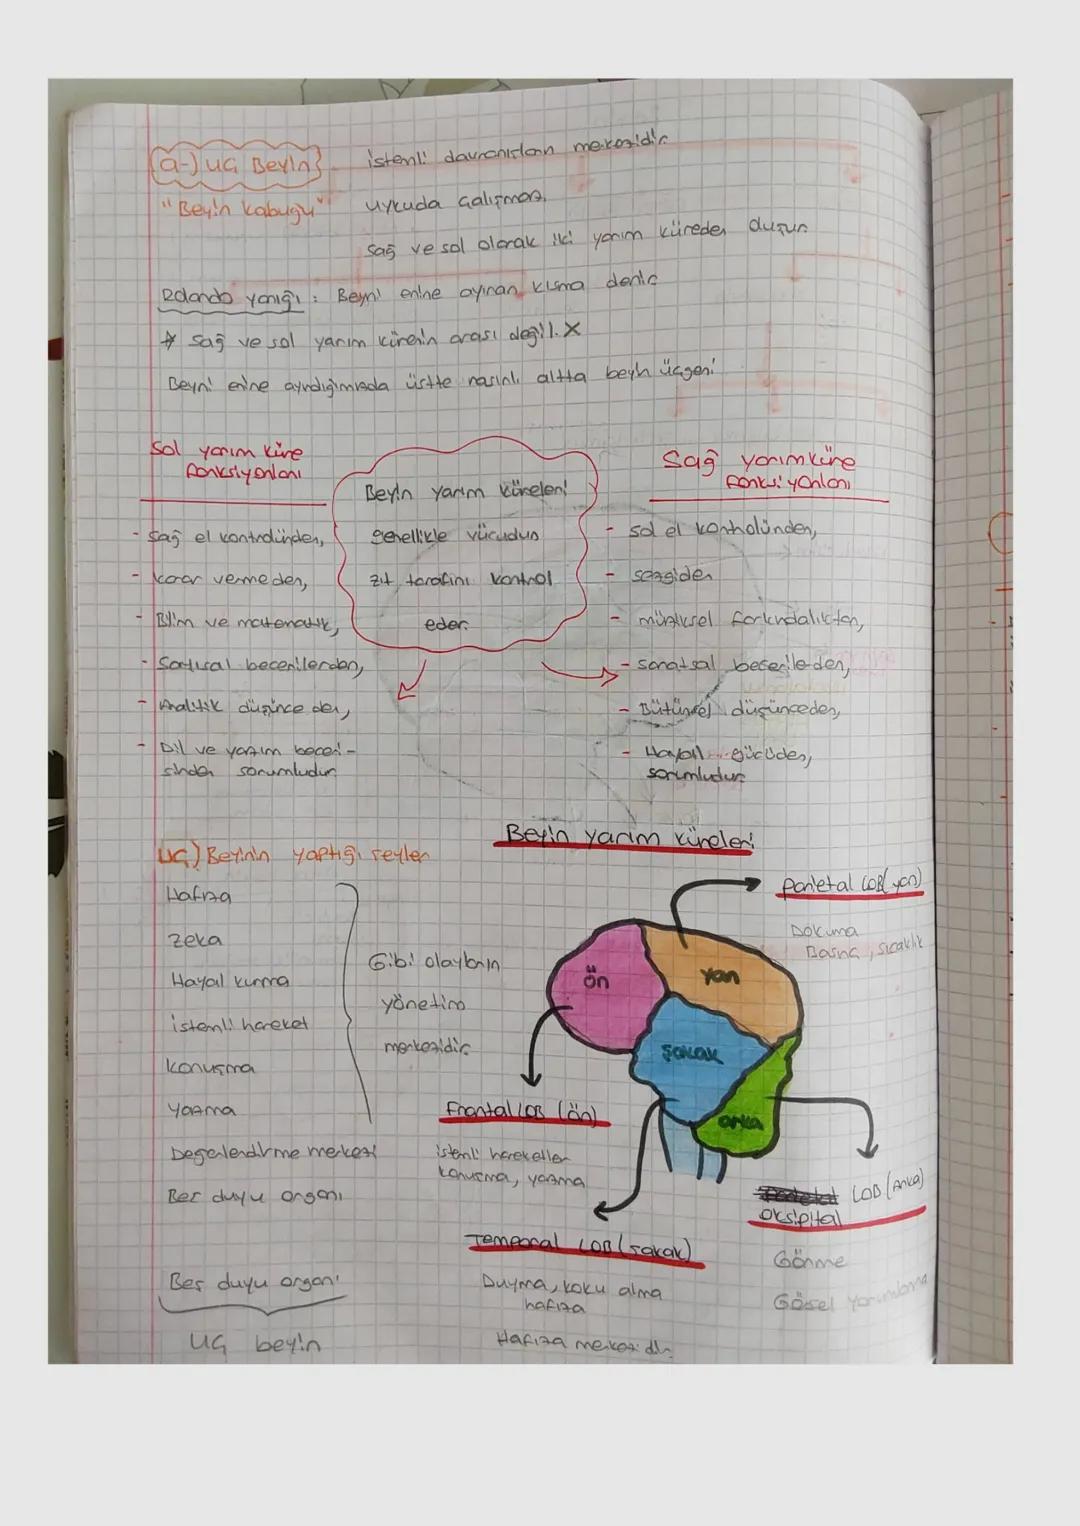 a-) uç Beyin
istemli davranışların merkezidir.
"Beyin kabuğu"
uykuda çalışmaz.
sağ ve sol olarak iki yarım küreden oluşur
Rolando yarığı : Beyni enine ayıran kısma denir
* sağ ve sol yarım kürenin arası değil. X
Beyni enine ayırdığımızda üstte nasırlı altta beyin üçgeni
Sol yarım küre
fonksiyonları
- Sağ el kontrolünden,
- karar vermeden,
- Bilim ve matematik,
- Sayısal becerilerden,
- Analitik düşünceden,
- Dil ve yazım beceri-
sinden sorumludur
Beyin yarım küreleri
genellikle vücudun
zıt tarafını kontrol
eder.
Sağ yarımküre
fonksiyonları
- sol el kontrolünden,
- sezgiden
- müziksel farkındalıktan,
- sanatsal becerilerden,
- Bütünsel düşünceden,
- Hayal gücüden,
sorumludur
Uç) Beyinin yaptığı şeyler
Hafıza
Zeka
Hayal kurma
istemli hareket
konuşma
yazma
Değerlendirme merkezi
Beş duyu organı
Gibi olayların
yönetim
merkezidir.
Beş duyu organı
uç beyin
Beyin yarım küreleri
Parietal LOB (yan)
Dokuma
Basınç, sıcaklık
ön
yan
şakak
arka
Frontal LOB (ön)
istemli hareketler
konuşma, yazma
Temporal LOB (şakak)
Duyma, koku alma
hafıza
Hafıza merkezidir.
LOB (Arka)
oksipital
Görme
Görsel yorumlama